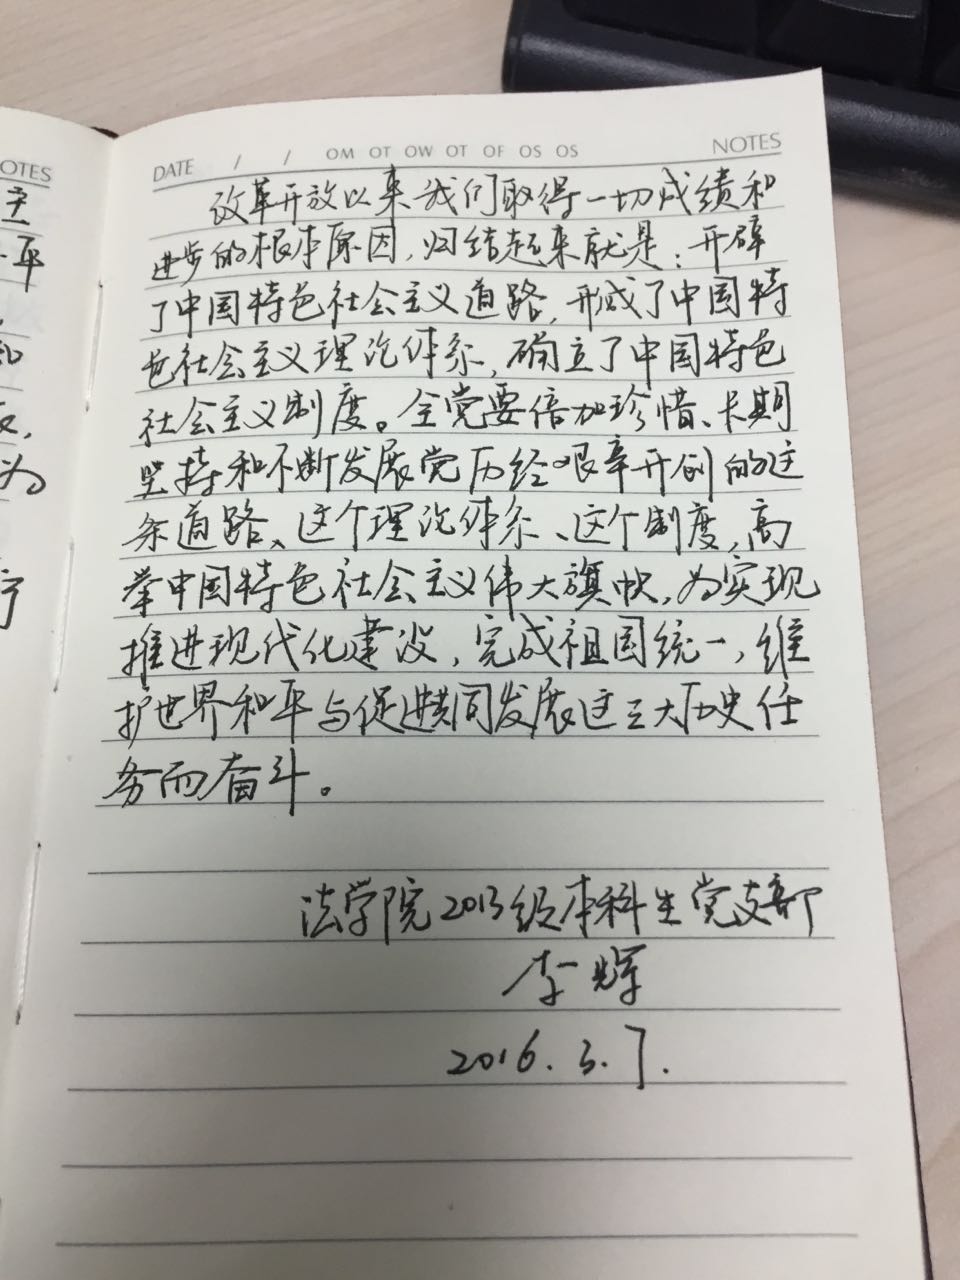 OTES
主
平
知
为
DATE / / OM OT OW OT OF OS OS NOTES
改革开放以来我们取得一切成绩和
进步的根本原因,归结起来就是:开辟
了中国特色社会主义道路,形成了中国特
色社会主义理论体系,确立了中国特色
社会主义制度。全党要倍加珍惜、长期
坚持和不断发展党历经艰辛开创的这
条道路、这个理论体系、这个制度,高
举中国特色社会主义伟大旗帜,为实现
推进现代化建设,完成祖国统一,维
护世界和平与促进共同发展这三大历史任
务而奋斗。
法学院2013级本科生党支部
李辉
2016.3.7.